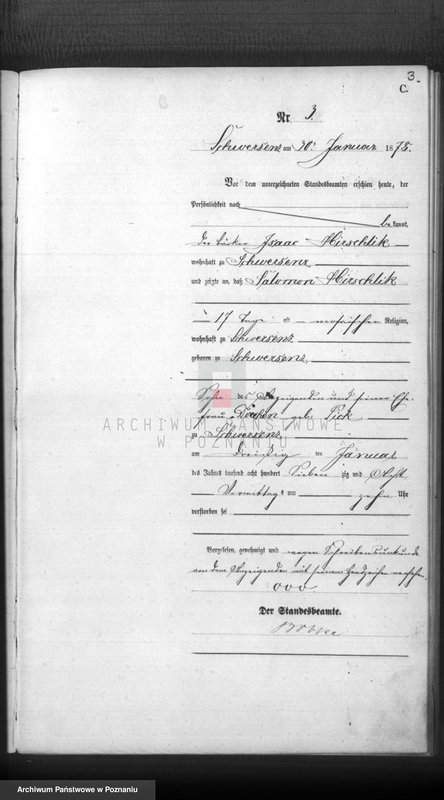 3.
C.
Nr. 3.
Schwersenz am 30. Januar 1878.
Vor dem unterzeichneten Standesbeamten erschien heute, der
Persönlichkeit nach
be kannt,
der Isaac Hirschlik
wohnhaft zu Schwersenz
und zeigte an, daß Salomon Hirschlik
17 Tage alt mosaischer Religion,
wohnhaft zu Schwersenz
geboren zu Schwersenz,
Sohn des Anzeigenden und seiner Ehe
frau geb. Pick
zu Schwersenz
am dreißig ten Januar
des Jahres tausend acht hundert sieben zig und acht
Vormittags um zehn Uhr
verstorben sei
Vorgelesen, genehmigt und wegen Schreibensunkunde
von dem Anzeigenden mit seinem Handzeichen versehen.
ooo
Der Standesbeamte.
ARCHIWUM PAŃSTWOWE
W POZNANIU
Archiwum Państwowe w Poznaniu